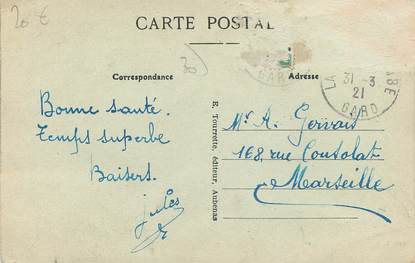 20 €
CARTE POSTAL
Correspondance
Adresse
LA
31-3
21
GARD
Bonne santé.
Temps superbe
Baisers.
Jules
E. Tourrette, éditeur, Aubenas
Mr A. Gervais
168, rue Consolat
Marseille